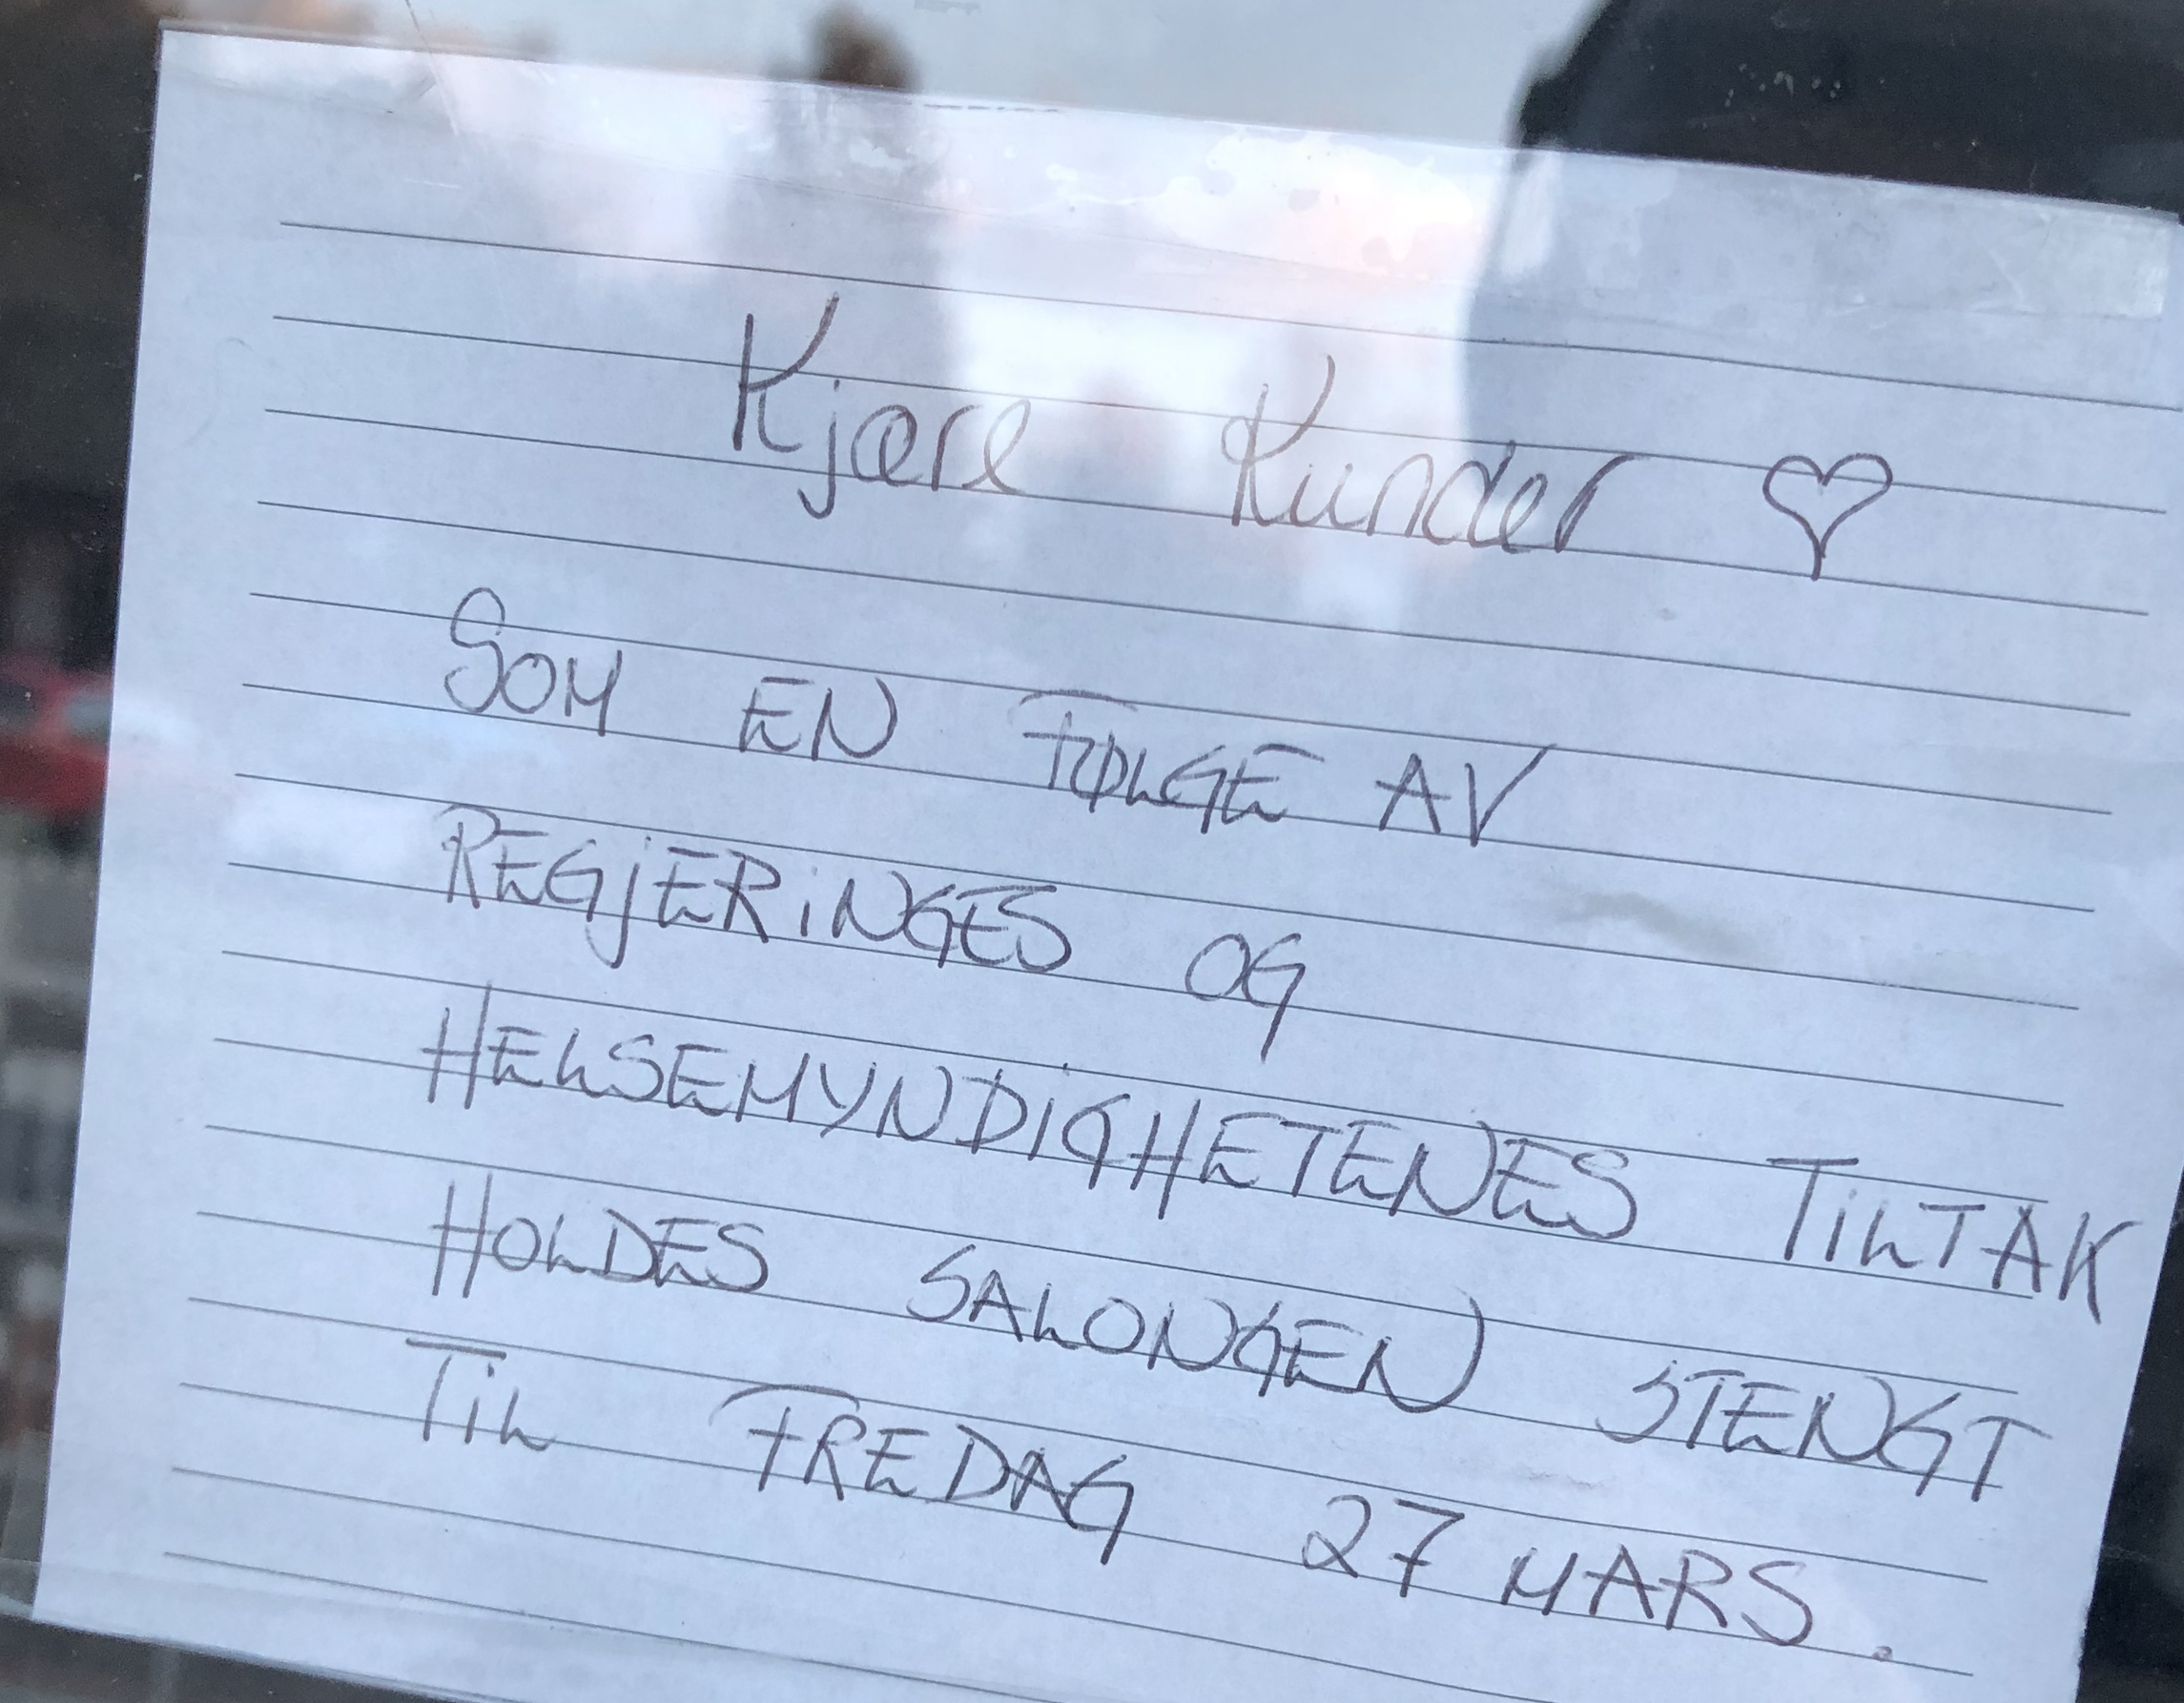 Kjære Kunder ♡
SOM EN FØLGE AV
REGJERINGES OG
HELSEMYNDIGHETENES TILTAK
HOLDES SALONGEN STENGT
TIL FREDAG 27 MARS.